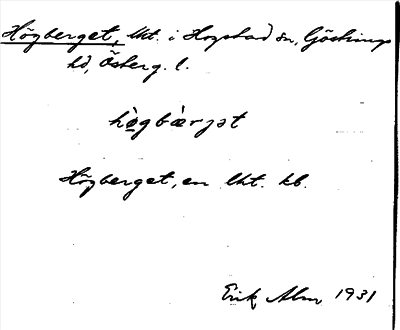 Högberget, lht. i Hogstad sn, Göstrings
hd, Österg. l.
hògbàrjət
Högberget, en lht. kb.
Erik Alm 1931